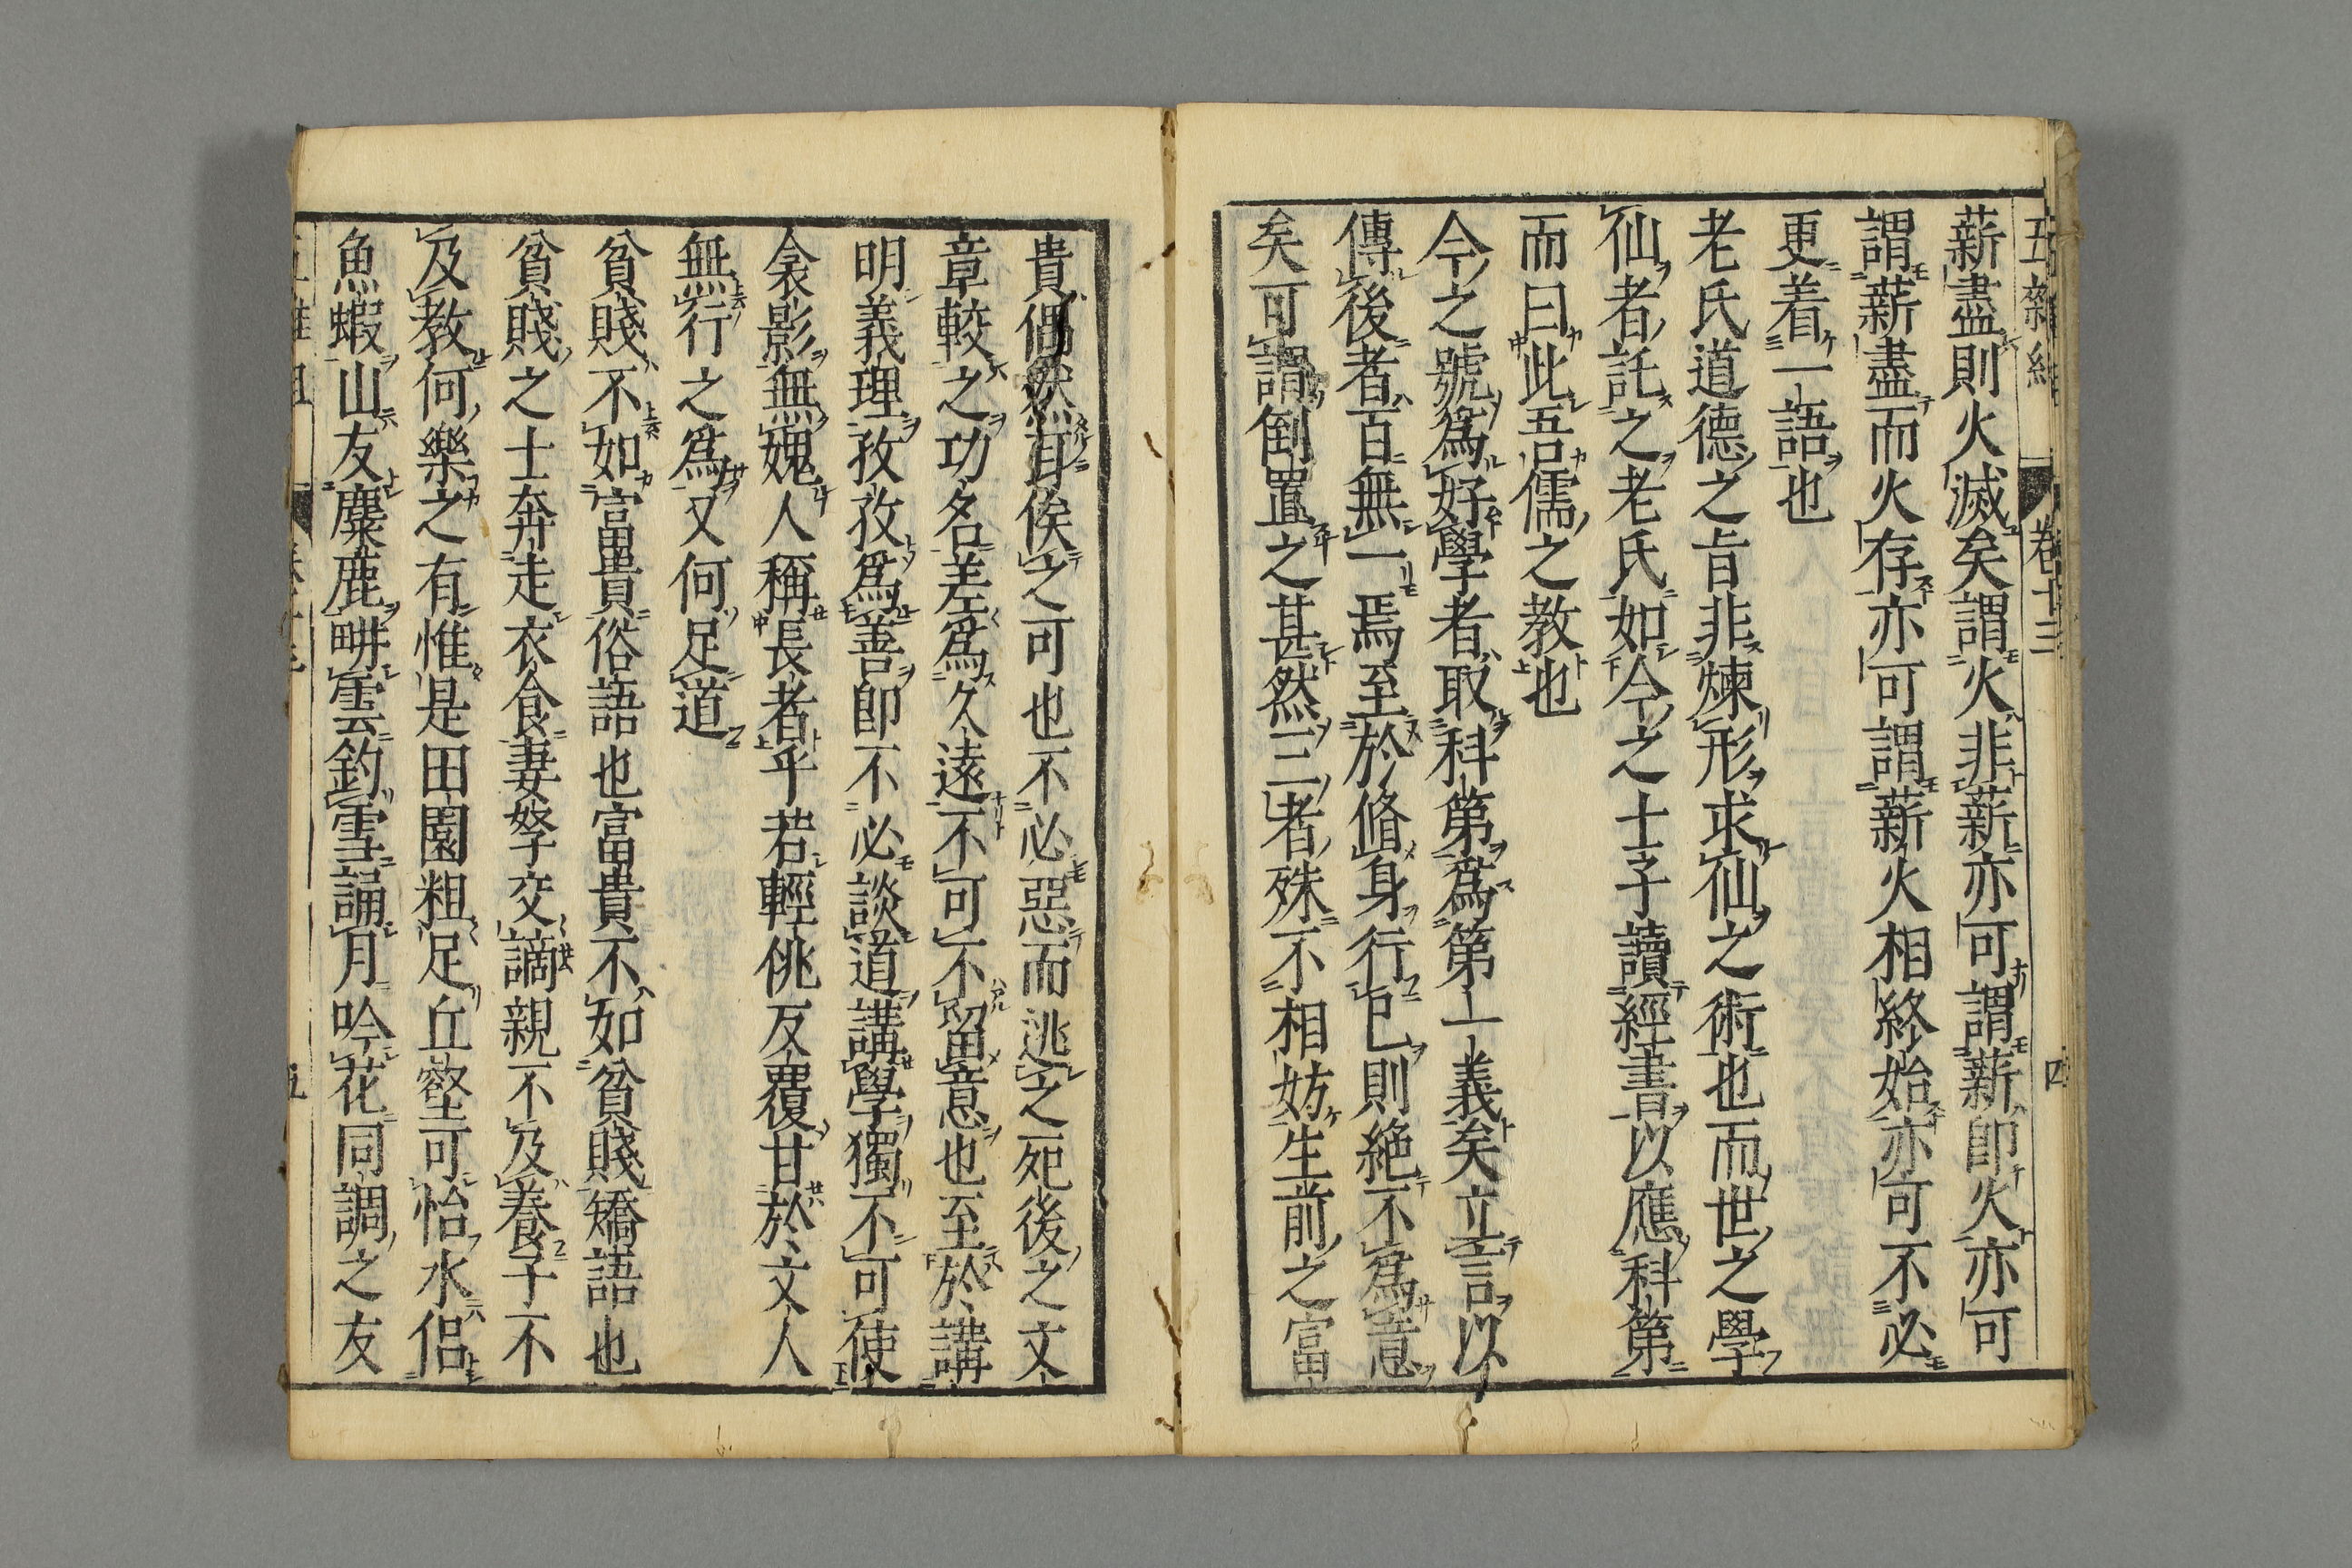 五雜組 卷十三 四
薪盡則火滅矣謂火非薪亦可謂薪即火亦可
謂薪盡而火存亦可謂薪火相終始亦可不必
更着一語也
老氏道德之旨非煉形求仙之術也而世之學
仙者託之老氏如今之士子讀經書以應科第
而曰此吾儒之教也
今之號爲好學者取科第爲第一義矣立言以
傳後者百無一焉至於脩身行已則絶不爲意
矣可謂倒置之甚然三者殊不相妨生前之富
貴偶然耳俟之可也不必惡而逃之死後之文
章較之功名差爲久遠不可不留意也至於講
明義理孜孜爲善即不必談道講學獨不可使
衾影無媿人稱長者乎若輕佻反覆甘於文人
無行之爲又何足道
貧賤不如富貴俗語也富貴不如貧賤矯語也
貧賤之士奔走衣食妻孥交謫親不及養子不
及教何樂之有惟是田園粗足丘壑可怡水侶
魚蝦山友麋鹿畊雲釣雪誦月吟花同調之友
五